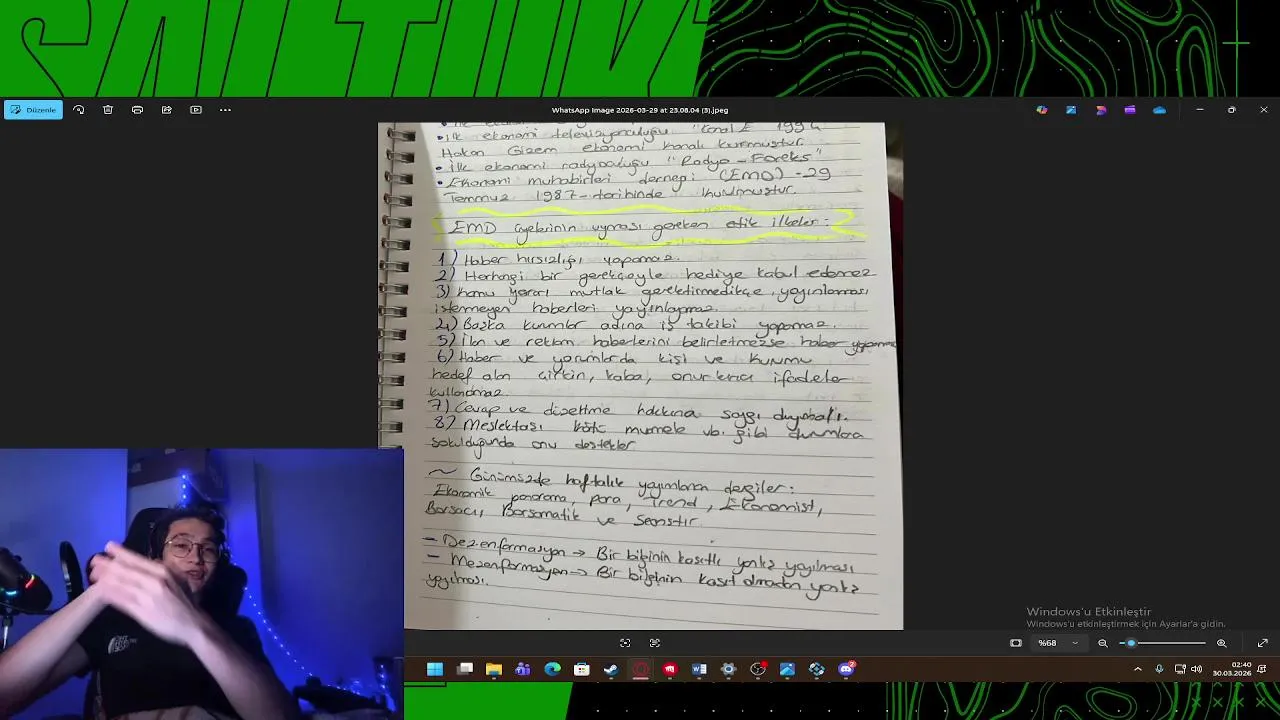 Düzenle
WhatsApp Image 2026-03-29 at 23.08.04 (3).jpeg
•ilk ekonomi televizyonculuğu "Kanal E 1994
Hakan Gizem ekonomi kanalı kurmuştur.
• ilk ekonomi radyoculuğu "Radyo-Foreks"
• Ekonomi muhabirleri derneği (EMD) -29
Temmuz 1987-tarihinde kurulmuştur.
EMD üyelerinin uyması gereken etik ilkeler:
1) Haber hırsızlığı yapamaz.
2) Herhangi bir gerekçeyle hediye kabul edemez
3) Kamu yararı mutlak gerektirmedikçe, yayınlanması
istenmeyen haberleri yayınlayamaz.
4) Başka kurumlar adına iş takibi yapamaz.
5) İlan ve reklam haberlerini belirletmezse haber yapamaz
6) Haber ve yorumlarda kişi ve kurumu
hedef alan çirkin, kaba, onur kırıcı ifadeler
kullanılmaz.
7) Cevap ve düzeltme hakkına saygı duymalı.
8) Meslektaşı kötü muamele vb. gibi durumlara
sokulduğunda onu destekler
~ Günümüzde haftalık yayımlanan dergiler:
Ekonomik panorama, para, Trend, Ekonomist,
Borsacı, Borsamatik ve Seanstır.
- Dezenformasyon → Bir bilginin kasıtlı yanlış yayılması
- Mezenformasyon → Bir bilginin kasıt olmadan yanlış
yayılması.
Windows'u Etkinleştir
Windows'u etkinleştirmek için Ayarlar'a gidin.
%68
02:40
30.03.2026